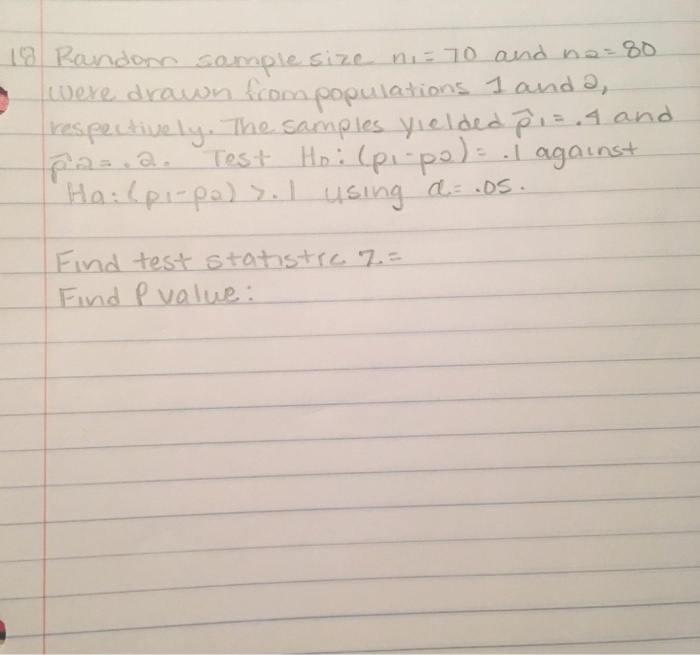 18 Random sample size n1=70 and n2=80
were drawn from populations 1 and 2,
respectively. The samples yielded p̂1=.4 and
p̂2=.2. Test Ho: (p1-p2)=.1 against
Ha: (p1-p2) >.1 using α=.05.
Find test statistic z=
Find P value: